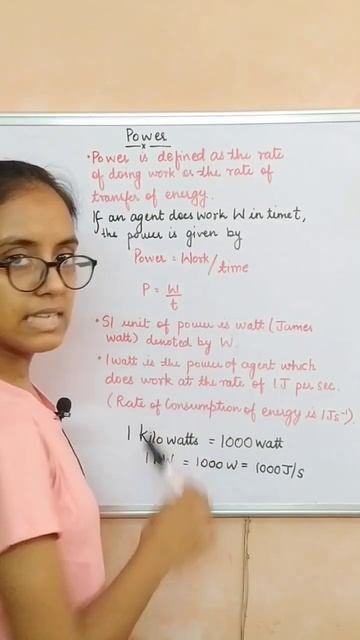 Power
• Power is defined as the rate
of doing work or the rate of
transfer of energy.
If an agent does work W in time t,
the power is given by
Power = Work/time
P = W/t
• SI unit of power is watt (James
watt) denoted by W.
• 1 watt is the power of agent which
does work at the rate of 1J per sec.
(Rate of Consumption of energy is 1Js⁻¹)
1 kilowatts = 1000 watt
1 kW = 1000 W = 1000 J/s